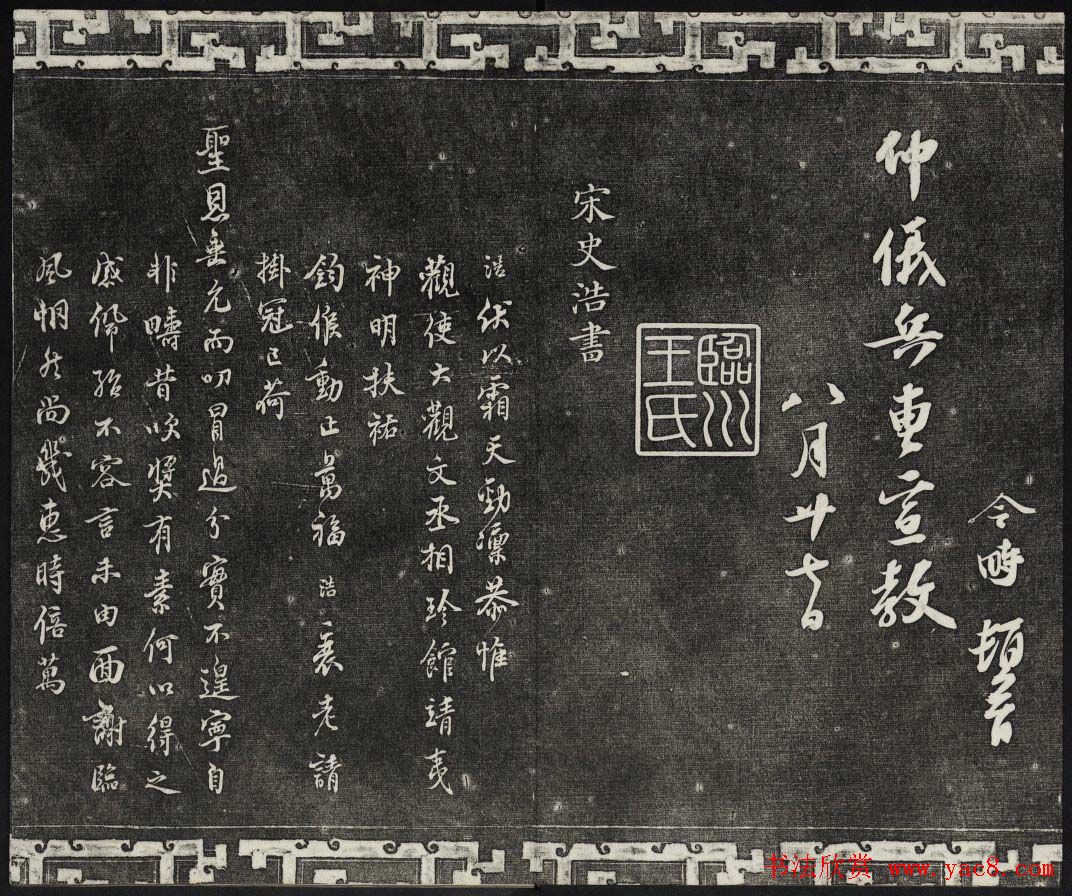 令時頓首
仲儀兵曹宣教
八月廿七日
臨川王氏
宋史浩書
浩伏以霜天勁凜恭惟
觀使大觀文丞相珍館靖夷
神明扶祐
鈞候動止萬福浩衰老請
掛冠已荷
聖恩垂允而叨冒過分實不遑寧自
非疇昔吹獎有素何以得之
感佩殆不容言未由面謝臨
風惘然尚幾惠時倍萬
书法欣赏 www.yac8.com